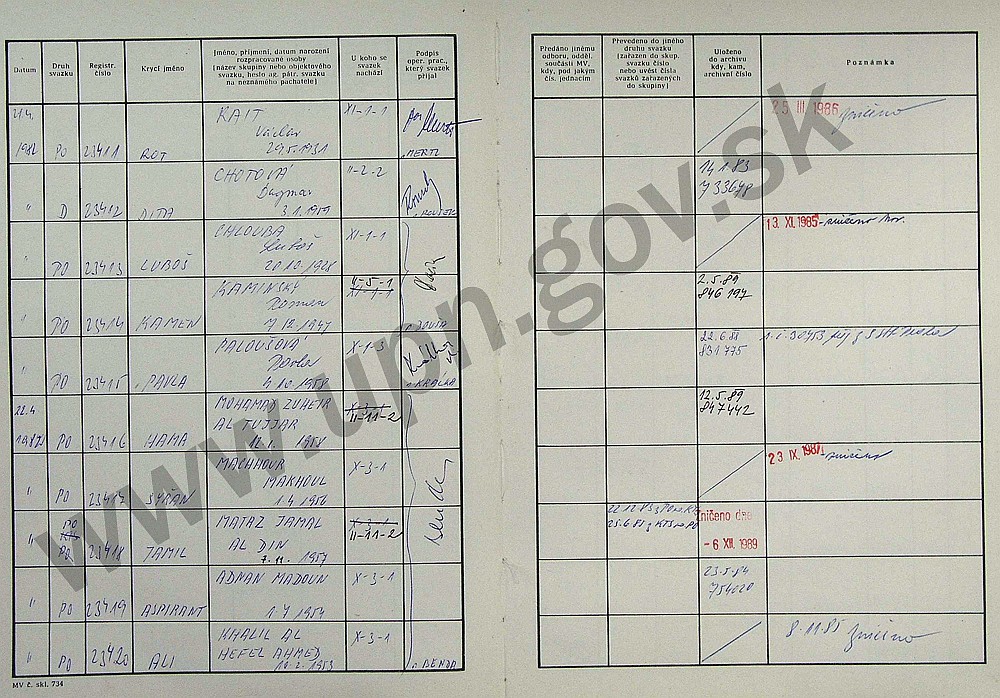 Datum
Druh
svazku
Registr.
číslo
Krycí jméno
Jméno, příjmení, datum narození
rozpracované osoby
(název skupiny nebo objektového
svazku, heslo ag. pátr. svazku
na neznámého pachatele)
U koho se
svazek
nachází
Podpis
oper. prac.,
který svazek
přijal
Předáno jinému
odboru, odděl.
součásti MV,
kdy, pod jakým
čís. jednacím
Převedeno do jiného
druhu svazku
(zařazen do skup.
svazku číslo
nebo uvést čísla
svazků zařazených
do skupiny)
Uloženo
do archivu
kdy, kam,
archivní číslo
Poznámka
21.4.
1982 PO 23411 ROT
RAIT
Václav
29.5.1931
XI-1-1
MERTL
25 III 1986 Zničeno
" D 23412 DITA
CHOTOVÁ
Dagmar
3.1.1959
II-2-2
14.1.83
733648
" PO 23413 LUBOŠ
CHLOUBA
Luboš
20.10.1928
XI-1-1
13. XI. 1985 - zničeno
" PO 23414 KAMEN
KAMINSKÝ
Roman
7.12.1947
II-5-1
XI-1-1
2.5.89
846 194
" PO 23415 PAVLA
PALOUŠOVÁ
4.10.1958
X-1-3
KRAČKA
22.6.88
831775
22.4.
1982 PO 23416 HAMA
MOHAMAD ZUHEIR
AL TUJJAR
12.1.1958
X-3-1
II-11-2
12.5.89
847442
" PO 23417
MACHHOUR
MAKHOUL
1.4.1956
X-3-1
23 IX. 1987 - zničeno
" PO
PO 23418 JAMIL
MATAZ JAMAL
AL DIN
7.11.1957
X-3-1
II-11-2
Zničeno dne
- 6 XII. 1989
" PO 23419 ASPIRANT
ADNAN MADOUN
1.7.1954
X-3-1
23.5.84
754020
" PO 23420 ALI
KHALIL AL
HEFEL AHMED
10.2.1953
X-3-1
BENDA
8.11.85 Zničeno
MV č. skl. 734
www.upn.gov.sk